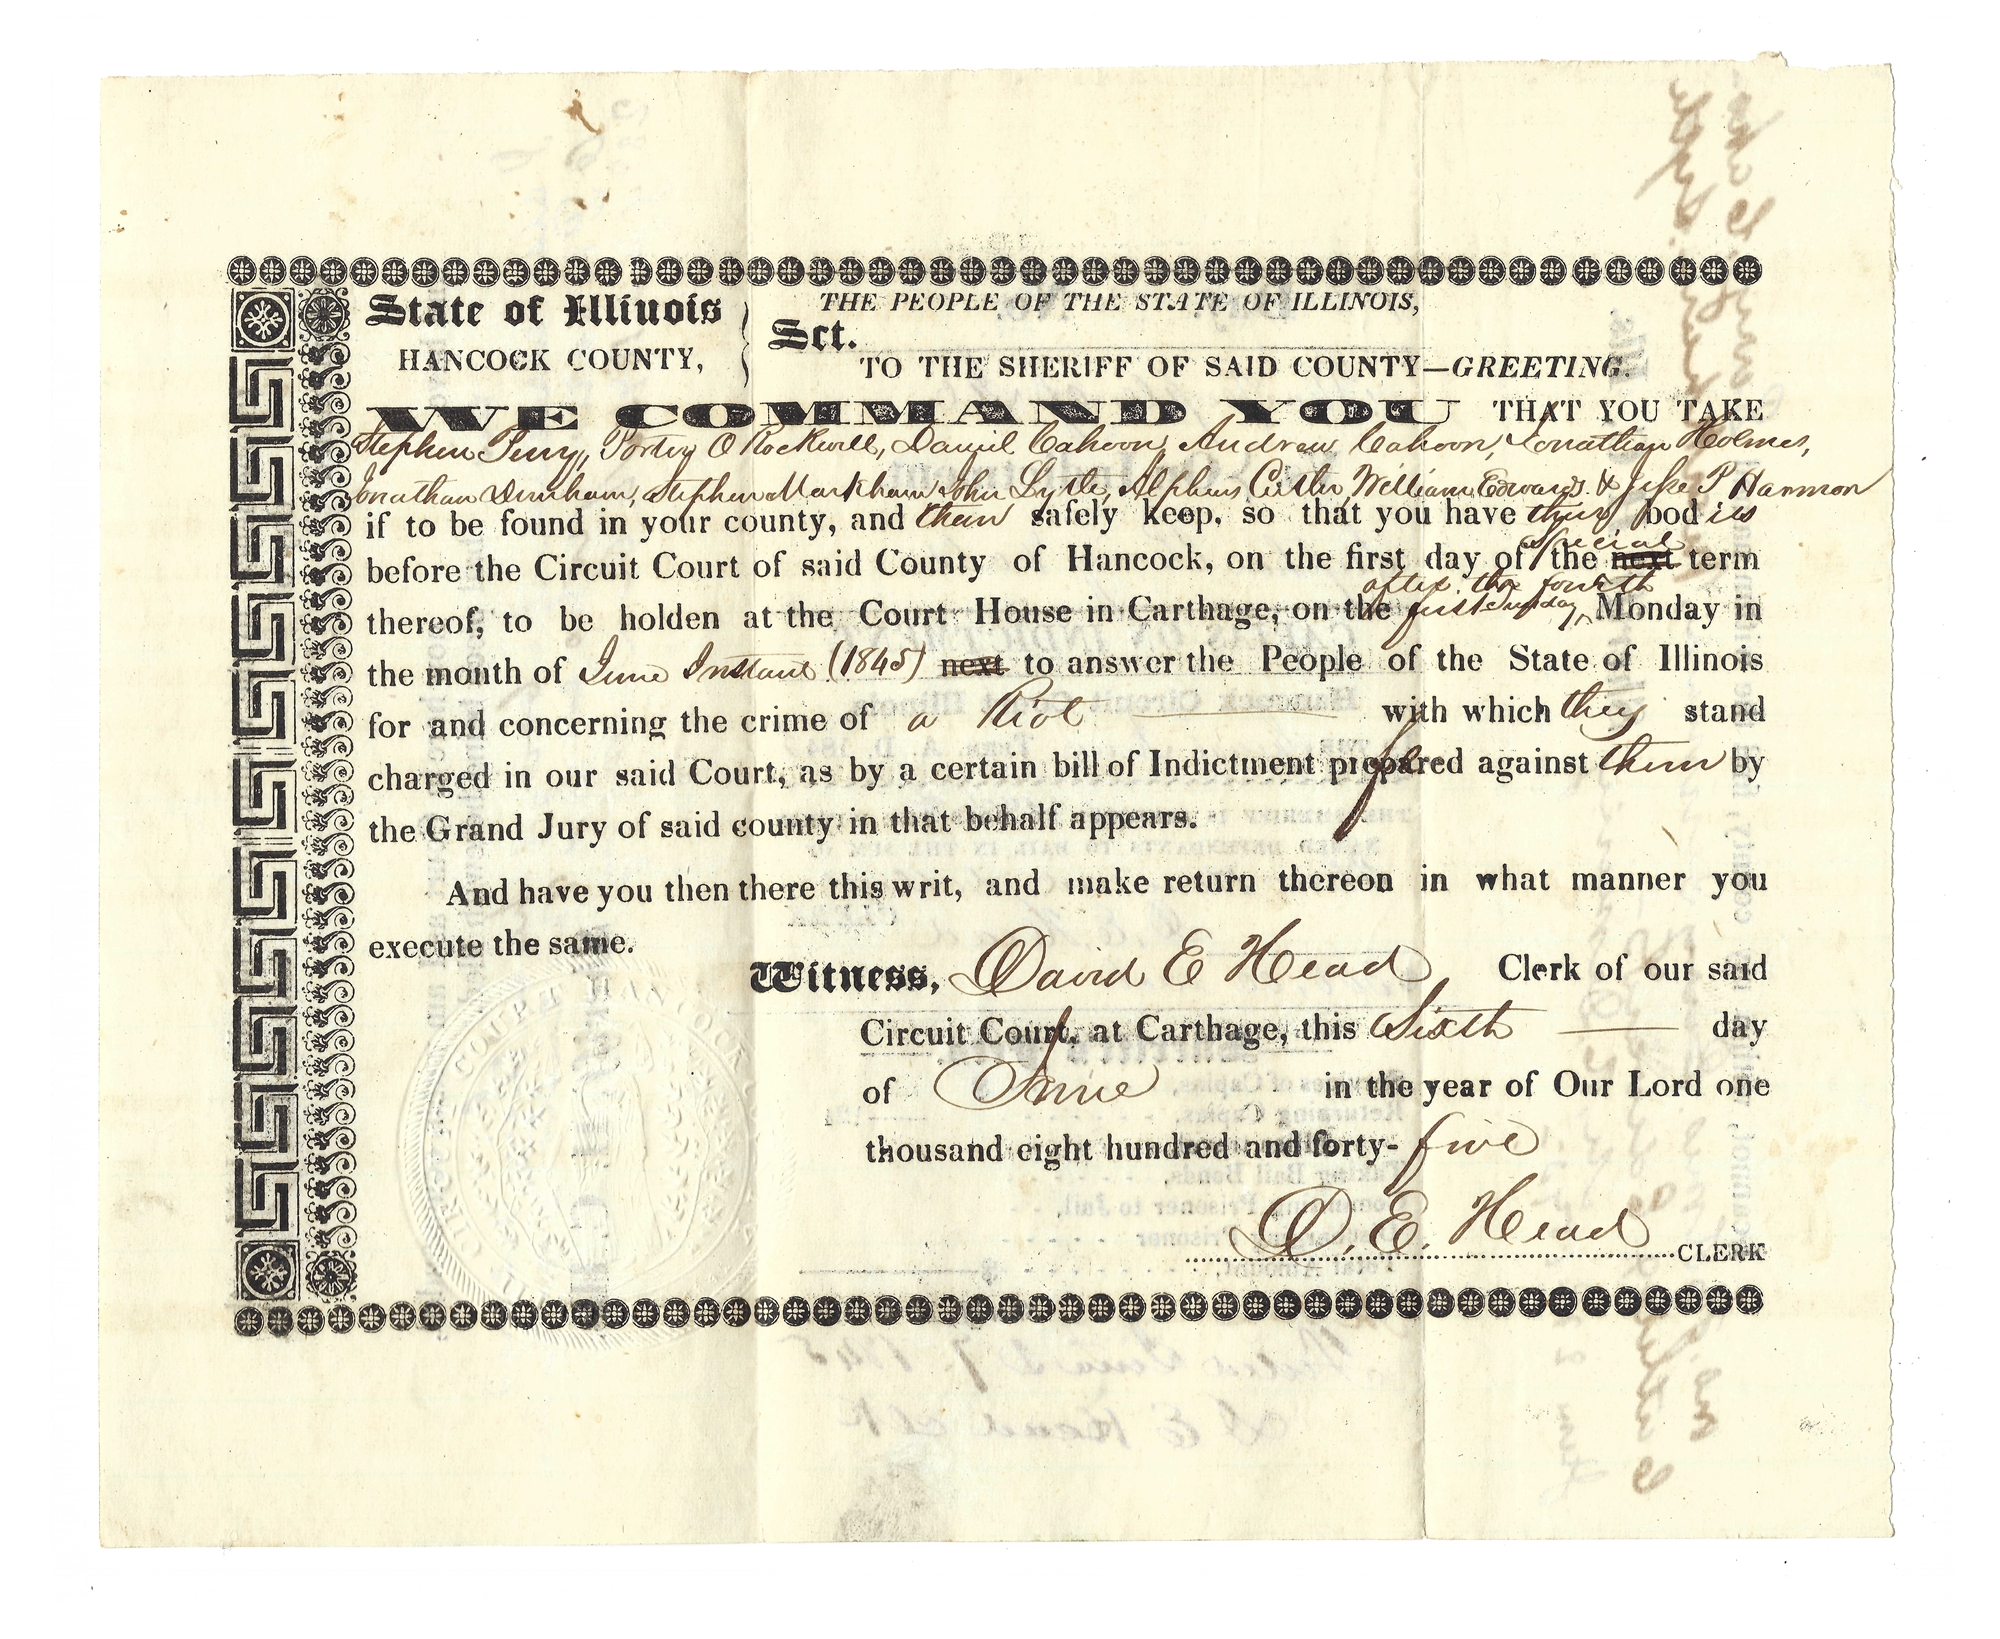 State of Illinois
HANCOCK COUNTY,
Sct.
THE PEOPLE OF THE STATE OF ILLINOIS,
TO THE SHERIFF OF SAID COUNTY—GREETING.
WE COMMAND YOU THAT YOU TAKE
Stephen Perry, Porter O Rockwell, Daniel Cahoon, Andrew Cahoon, Jonathan Holmes,
Jonathan Dunham, Stephen Markham John Lytle, Alpheus Cutler William Edwards & Jesse P Harmon
if to be found in your county, and them safely keep, so that you have their bodies
special
before the Circuit Court of said County of Hancock, on the first day of the next term
after the fourth
thereof, to be holden at the Court House in Carthage, on the first Monday in
the month of June Instant (1845) next to answer the People of the State of Illinois
for and concerning the crime of a Riot with which they stand
charged in our said Court, as by a certain bill of Indictment prefered against them by
the Grand Jury of said county in that behalf appears.
And have you then there this writ, and make return thereon in what manner you
execute the same.
Witness, David E Head Clerk of our said
Circuit Court, at Carthage, this Sixth day
of June in the year of Our Lord one
thousand eight hundred and forty-five
D. E. Head CLERK